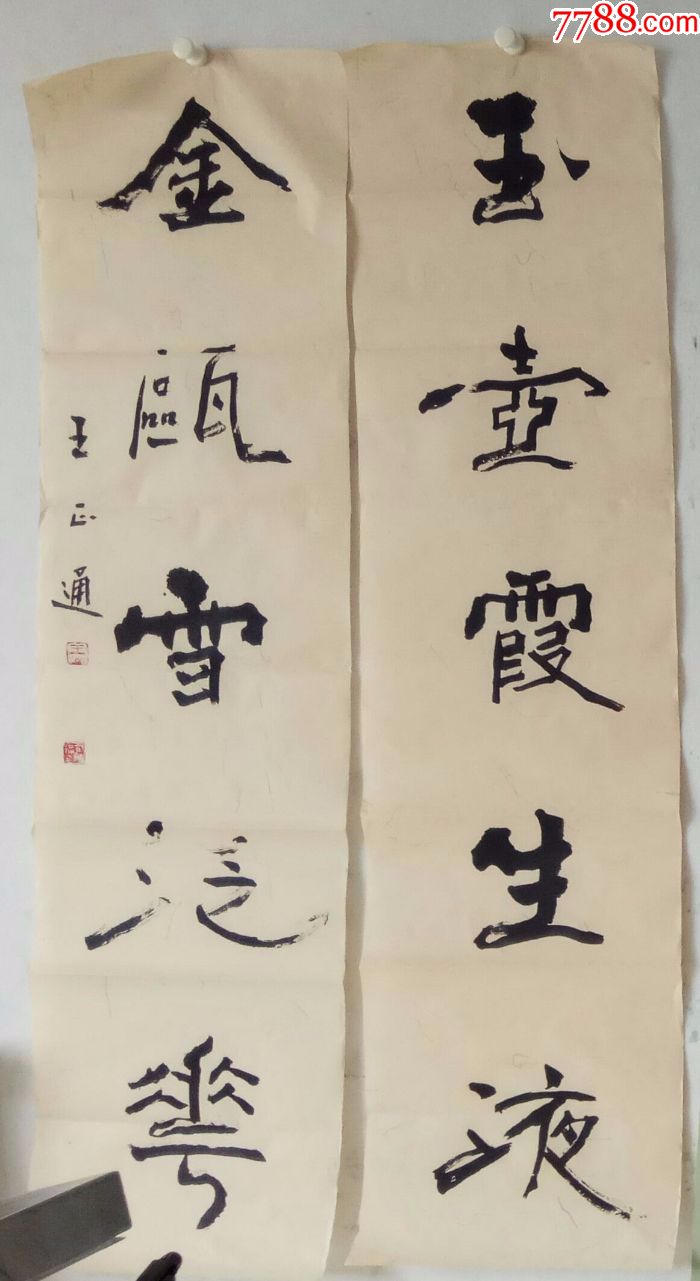 7788.com
玉壺霞生液
金甌雪泛華
王正通